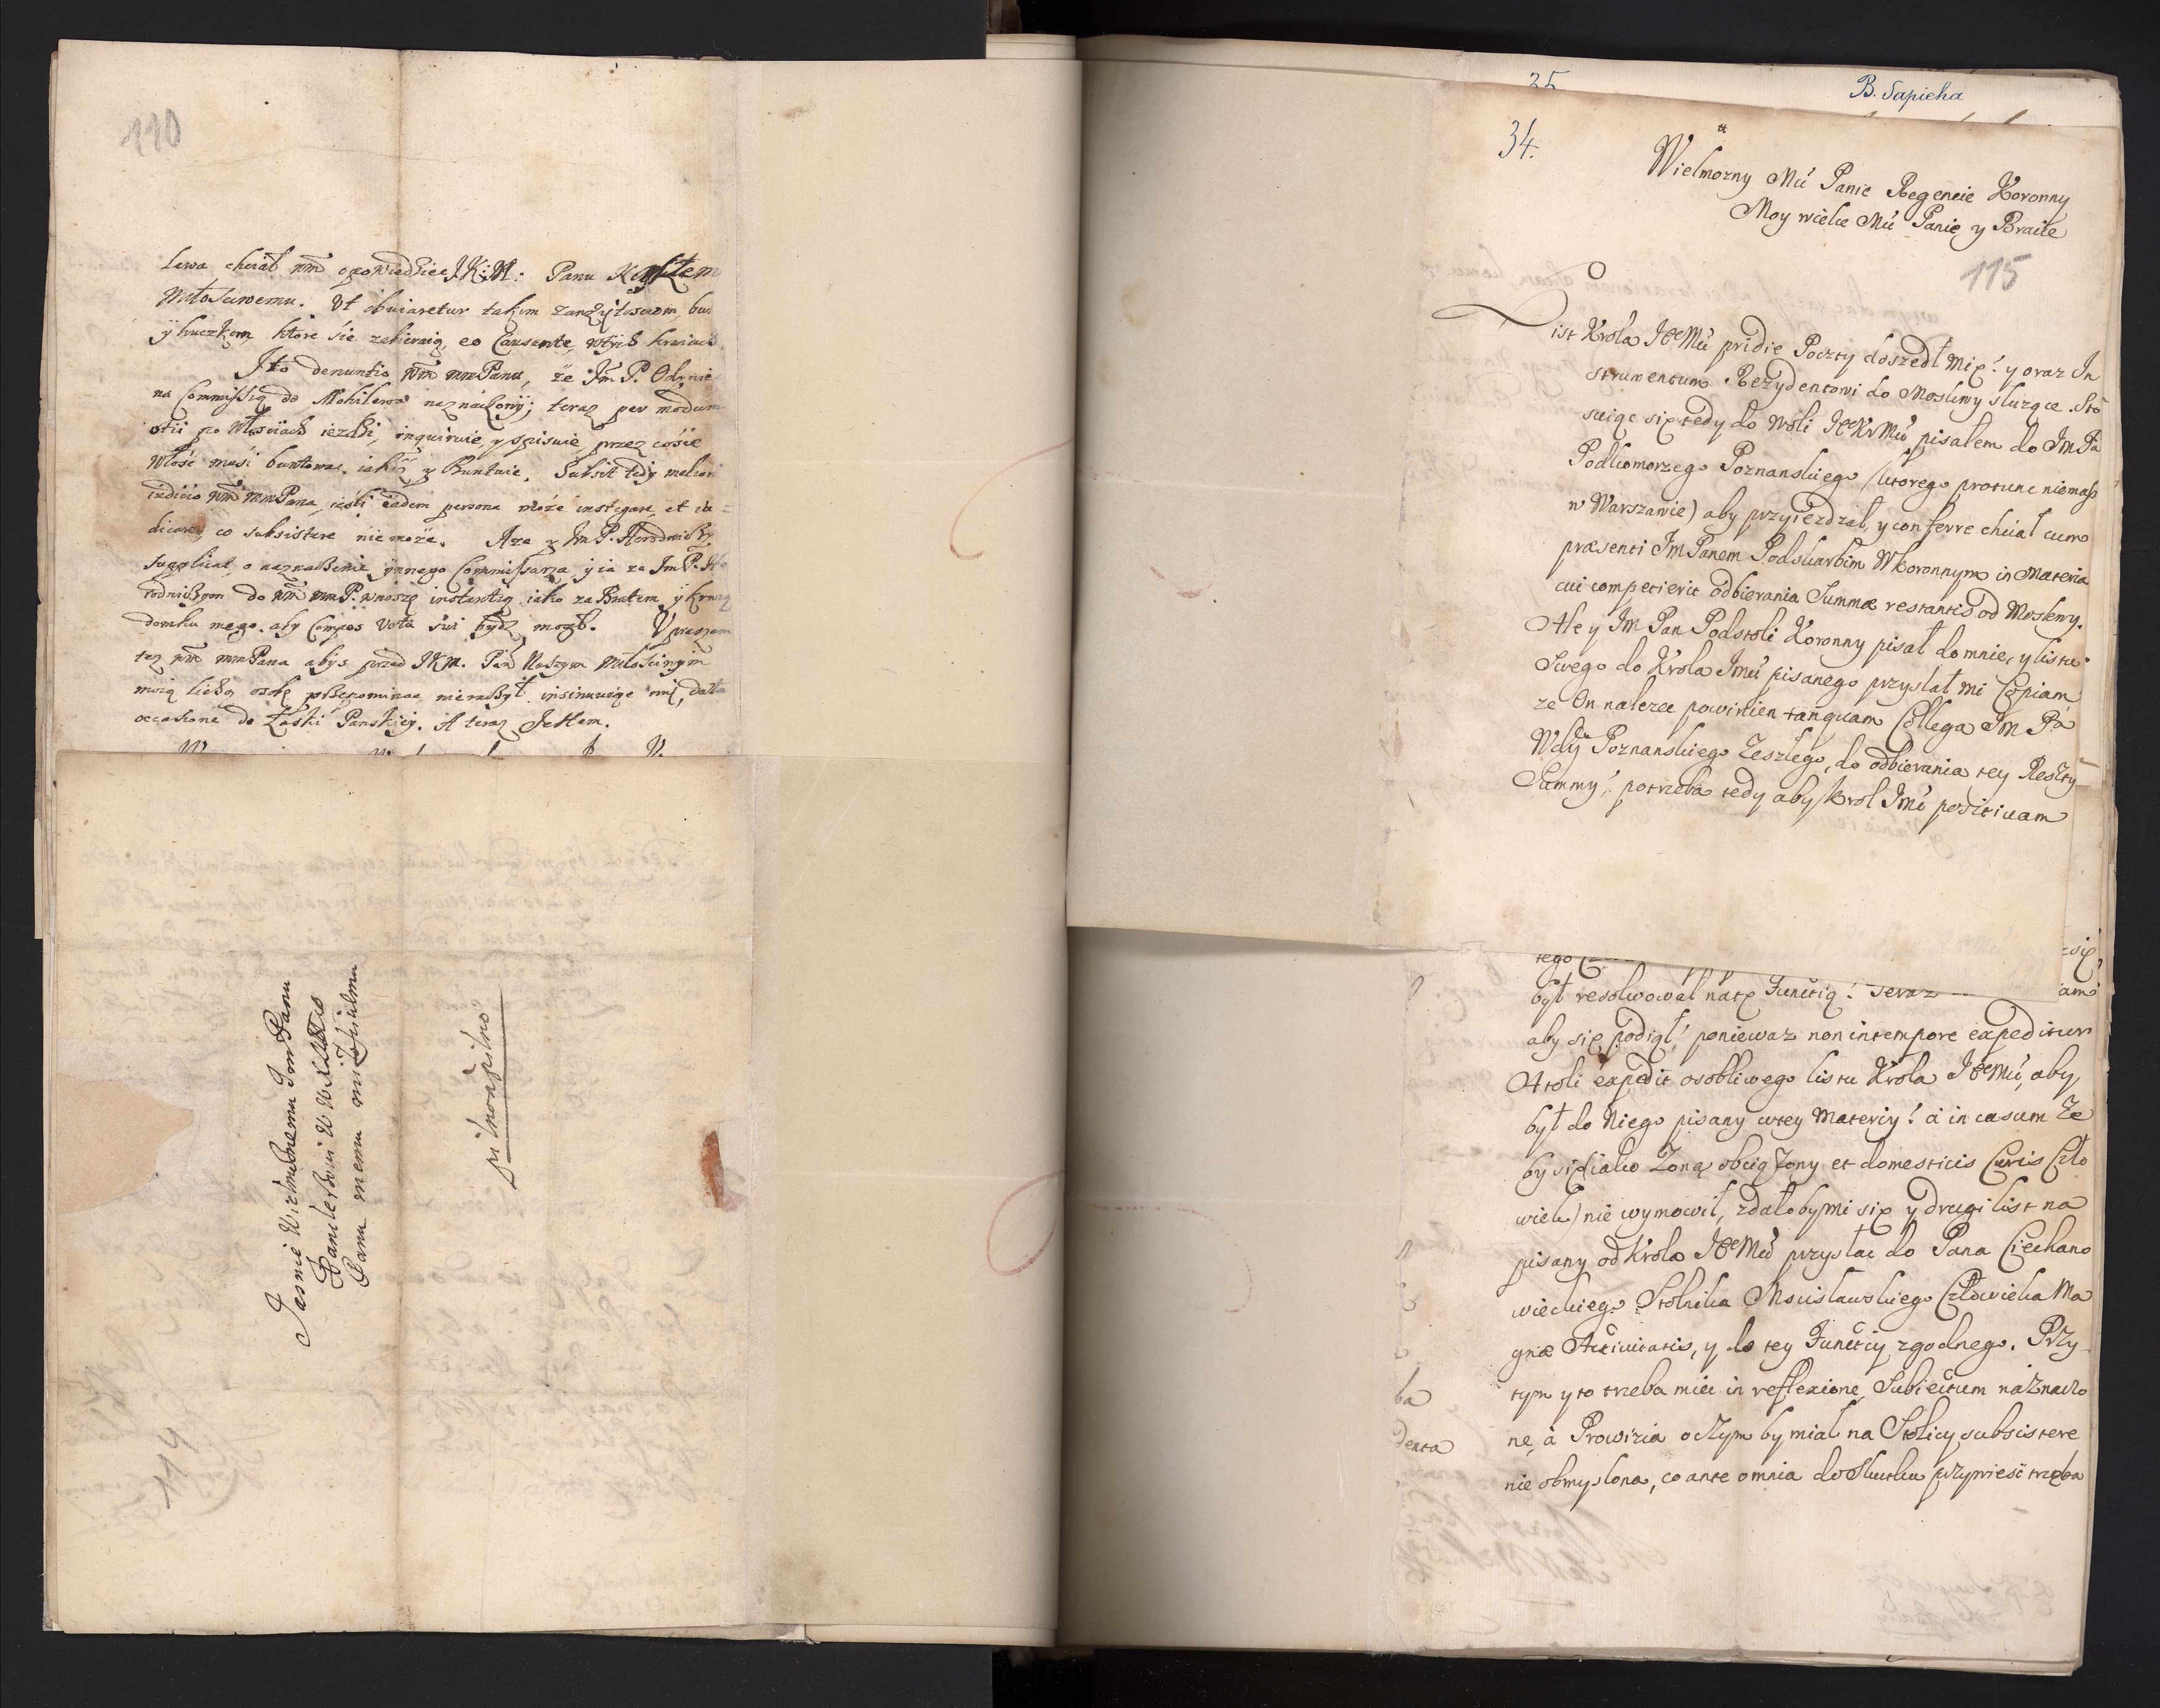 110
lewa chciał wm̃ opowiedziec J.K.M: Panu
Miłościwemu. Ut obviaretur takim
y huczkom ktore sie zebieraią, eo Causante, wtych kraiach.
Ito denuntio wm̃ mmPanu, że Jm̃ P. Odynie
na Commissią do Mohilewa naznaczony; teraz per modum
otii po Włościach iezdzi, inquiruie, y spisuie przez cosie
Włość musi buntowac iakosz y Buntuie. Subsit tedy meliori
iudicio wm̃ mmPana, iesli eadem persona może instigare, et iu=
dicare, co subsistere niemoże. Aze y Jm P. Horodniczy
supplicat, o naznaczenie ynnego Commissarza, y ia za Jm P. Ho
rodniczym do wm̃ mmP. wnoszę instantią iako za Bratem y krwią
domku mego. aby Compos Voti sui bydz mogł. Upraszam
tez wm̃ mmPana abys przed JKM. Pan̄ Naszym Miłościwym
moię lichą osobę przepominac nieraczył insinuuiąc mię, data
occasione do Łaski Panskiey. A teraz Jestem.
Jasnie Wielmożnemu Jm Panu
Panu memu miłosciwemu
pilno a pilno
114
35
B. Sapieha
34.
Wielmozny Mci Panie Regencie Koronny
Moy wielce Mci Panie y Bracie
115
List Krola JeoMci pridie Poczty doszedł mię! y oraz In
strumentum Rezydentowi do Moskwy sluzące. Sto
suiąc się tedy do woli JeoKrMci pisałem do Jm Pa
Podkomorzego Poznanskiego (ktorego protunc niemasz
w Warszawie) aby przyiezdzał, y conferre chciał cum
præsenti Jm Panem Podskarbim WKoronnym in Materia
cui competierit odbierania Summæ restantis od Moskwy.
Ale y Jm Pan Podstoli Koronny pisał do mnie, y listu
Swego do Krola Jmci pisanego przysłał mi Copiam
ze On nalezec powinien tanquam Collega Jm Pa
Wdy Poznanskiego Zeszłego, do odbierania tey Reszty
Summy! potrzeba tedy aby Krol Jmci positivam
tego
był resolwował natę Functią! Teraz
aby się podiął, poniewaz non intempore expeditur
Atoli expedit osobliwego listu Krola JeoMci, aby
był do Niego pisany wtey Materiy! à in casum Ze
by się (iako Zoną obciązony et domesticis Curis Czło
wiek) nie wymowił, zdałoby mi się y drugi list na
pisany od Krola JeoMci przysłac do Pana Ciechano
wieckiego Stolnika Mscisławskiego Człowieka Ma
gnæ Activitatis, y do tey Functiy zgodnego. Przy
tym y to trzeba miec in reflexione, Subiectum naznaczo
ne, à Prowizia oczym by miał na Stolicy subsistere
nie obmyslona, co ante omnia do Skutku przywiesc trzeba
ba
denta